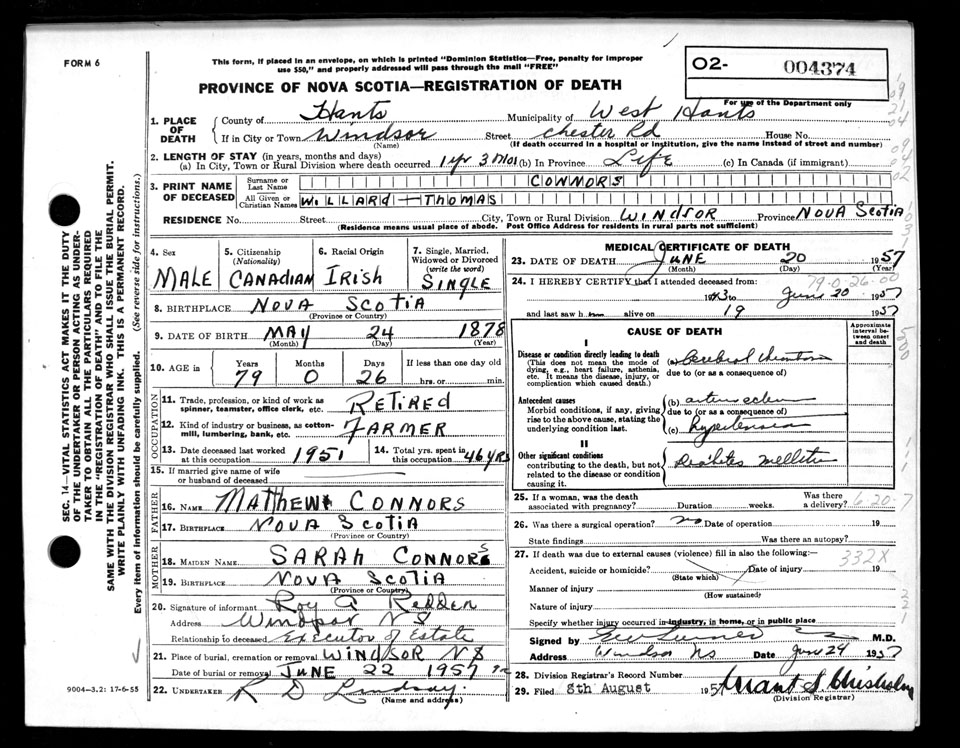 FORM 6
This form, if placed in an envelope, on which is printed "Dominion Statistics—Free, penalty for improper
use $50," and properly addressed will pass through the mail "FREE"
PROVINCE OF NOVA SCOTIA—REGISTRATION OF DEATH
02- 004374
For use of the Department only
1. PLACE OF DEATH
County of Hants Municipality of West Hants
If in City or Town Windsor Street Chester Rd House No.
(Name) (If death occurred in a hospital or institution, give the name instead of street and number)
2. LENGTH OF STAY (in years, months and days)
(a) In City, Town or Rural Division where death occurred 1 yr 3 mos (b) In Province Life (c) In Canada (if immigrant)
3. PRINT NAME OF DECEASED
Surname or Last Name CONNORS
All Given or Christian Names WILLARD—THOMAS
RESIDENCE No. Street City, Town or Rural Division WINDSOR Province NOVA SCOTIA
(Residence means usual place of abode. Post Office Address for residents in rural parts not sufficient)
4. Sex MALE
5. Citizenship (Nationality) CANADIAN
6. Racial Origin IRISH
7. Single, Married, Widowed or Divorced (write the word) SINGLE
8. BIRTHPLACE NOVA SCOTIA
(Province or Country)
9. DATE OF BIRTH MAY 24 1878
(Month) (Day) (Year)
10. AGE in Years Months Days If less than one day old
79 0 26 hrs. or min.
OCCUPATION
11. Trade, profession, or kind of work as
spinner, teamster, office clerk, etc. RETIRED
12. Kind of industry or business, as cotton-
mill, lumbering, bank, etc. FARMER
13. Date deceased last worked at this occupation 1951
14. Total yrs. spent in this occupation 46 YRS
15. If married give name of wife
or husband of deceased
FATHER
16. NAME MATTHEW CONNORS
17. BIRTHPLACE NOVA SCOTIA
(Province or Country)
MOTHER
18. MAIDEN NAME SARAH CONNORS
19. BIRTHPLACE NOVA SCOTIA
(Province or Country)
20. Signature of informant Roy A Redden
Address Windsor NS
Relationship to deceased Executor of Estate
21. Place of burial, cremation or removal WINDSOR NS
Date of burial or removal JUNE 22 1957
22. UNDERTAKER R D Lindsay
(Name and address)
MEDICAL CERTIFICATE OF DEATH
23. DATE OF DEATH JUNE 20 1957
(Month) (Day) (Year)
24. I HEREBY CERTIFY that I attended deceased from:
79-0-26-00
to June 20 1957
and last saw h alive on 19 1957
CAUSE OF DEATH
Approximate interval between onset and death
I
Disease or condition directly leading to death
(This does not mean the mode of
dying, e.g., heart failure, asthenia,
etc. It means the disease, injury, or
complication which caused death.)
(a) Cerebral
due to (or as a consequence of)
Antecedent causes
Morbid conditions, if any, giving
rise to the above cause, stating the
underlying condition last.
(b)
due to (or as a consequence of)
(c) hypertension
II
Other significant conditions
contributing to the death, but not
related to the disease or condition
causing it.
Diabetes Mellitus
25. If a woman, was the death associated with pregnancy? Duration weeks. Was there a delivery?
6-20-7
26. Was there a surgical operation? no Date of operation 19
State findings Was there an autopsy?
27. If death was due to external causes (violence) fill in also the following:—
332X
Accident, suicide or homicide? Date of injury 19
(State which)
Manner of injury
(How sustained)
Nature of injury
Specify whether injury occurred in industry, in home, or in public place
Signed by M.D.
Address Windsor NS Date June 29 1957
28. Division Registrar's Record Number
29. Filed 8th August 1957 Grant S. Chisholm
(Division Registrar)
SEC. 14—VITAL STATISTICS ACT MAKES IT THE DUTY
OF THE UNDERTAKER OR PERSON ACTING AS UNDER-
TAKER TO OBTAIN ALL THE PARTICULARS REQUIRED
IN THE "REGISTRATION OF DEATH" AND TO FILE THE
SAME WITH THE DIVISION REGISTRAR WHO SHALL ISSUE THE BURIAL PERMIT.
WRITE PLAINLY WITH UNFADING INK. THIS IS A PERMANENT RECORD.
Every item of information should be carefully supplied. (See reverse side for instructions.)
9004-3.2: 17-6-55